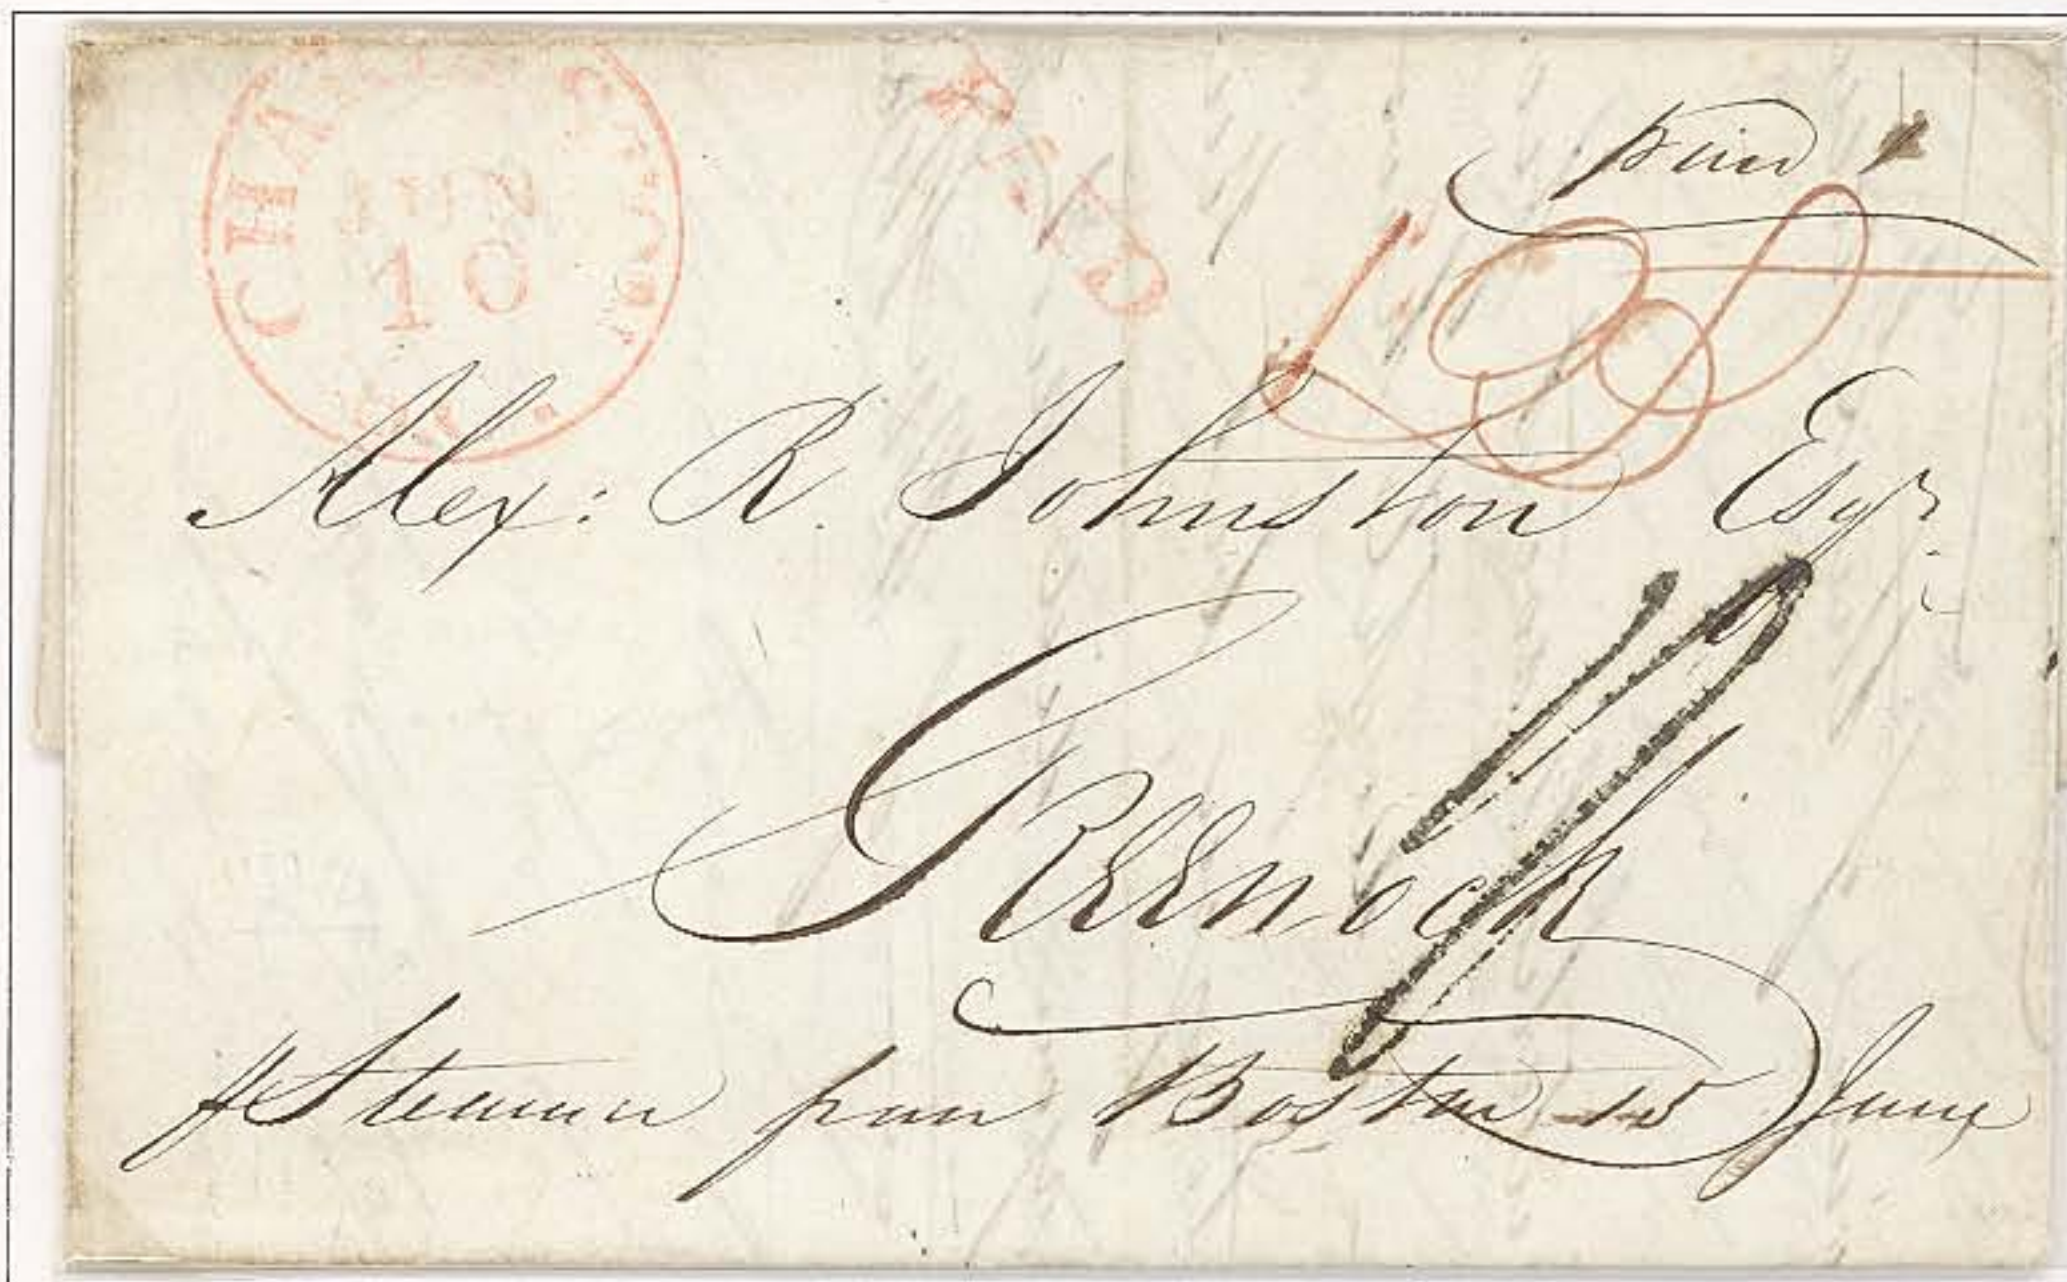 JUN
10
PAID
paid
Alex: R. Johnston Esqr.
Greenock
Steamer from Boston 15 June